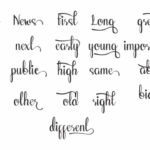 News first Long
next early young
public high same
other old right
different